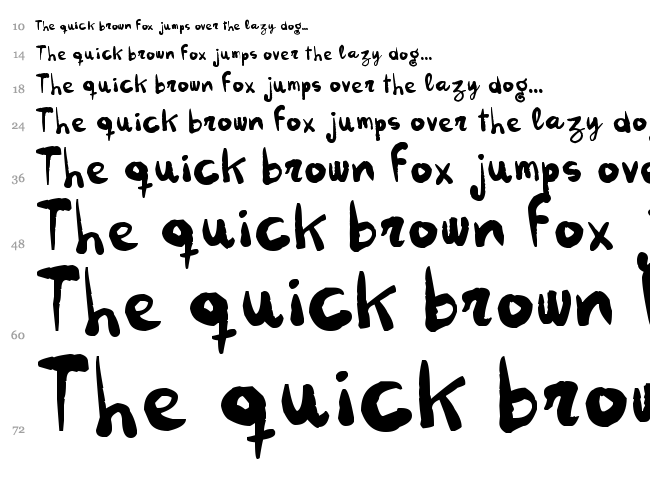 10 The quick brown fox jumps over the lazy dog...
14 The quick brown fox jumps over the lazy dog...
18 The quick brown fox jumps over the lazy dog...
24 The quick brown fox jumps over the lazy do
36 The quick brown fox jumps ove
48 The quick brown fox
60 The quick brown
72 The quick brow